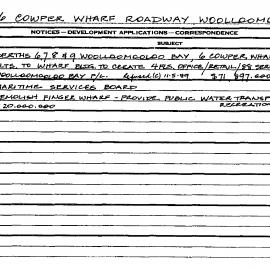 6 COWPER WHARF ROADWAY, WOOLLOOM
NOTICES — DEVELOPMENT APPLICATIONS — CORRESPONDENCE
SUBJECT
BERTHS 6, 7, 8 & 9 WOOLLOOMOOLOO BAY, 6 COWPER WHA
LTS. TO WHARF BLDG. TO CREATE 4 FLS. OFFICE/RETAIL/88 SER
WOOLLOOMOOLOO BAY P/L. (C) 11-5-89 $71 897.000
MARITIME SERVICES BOARD
DEMOLISH FINGER WHARF - PROVIDE PUBLIC WATER TRANSP
20.000.000 RECREATION